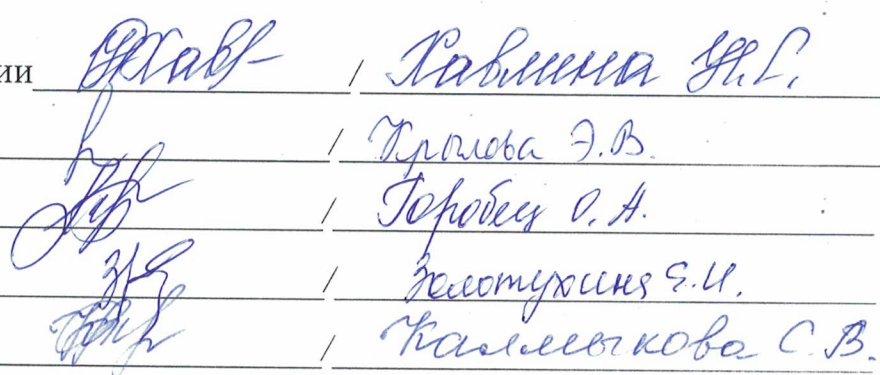 ии / Хавлина Н.Г.
/ Крылова Э.В.
/ Горобец О.А.
/ Золотухина Е.И.
/ Калмыкова С.В.